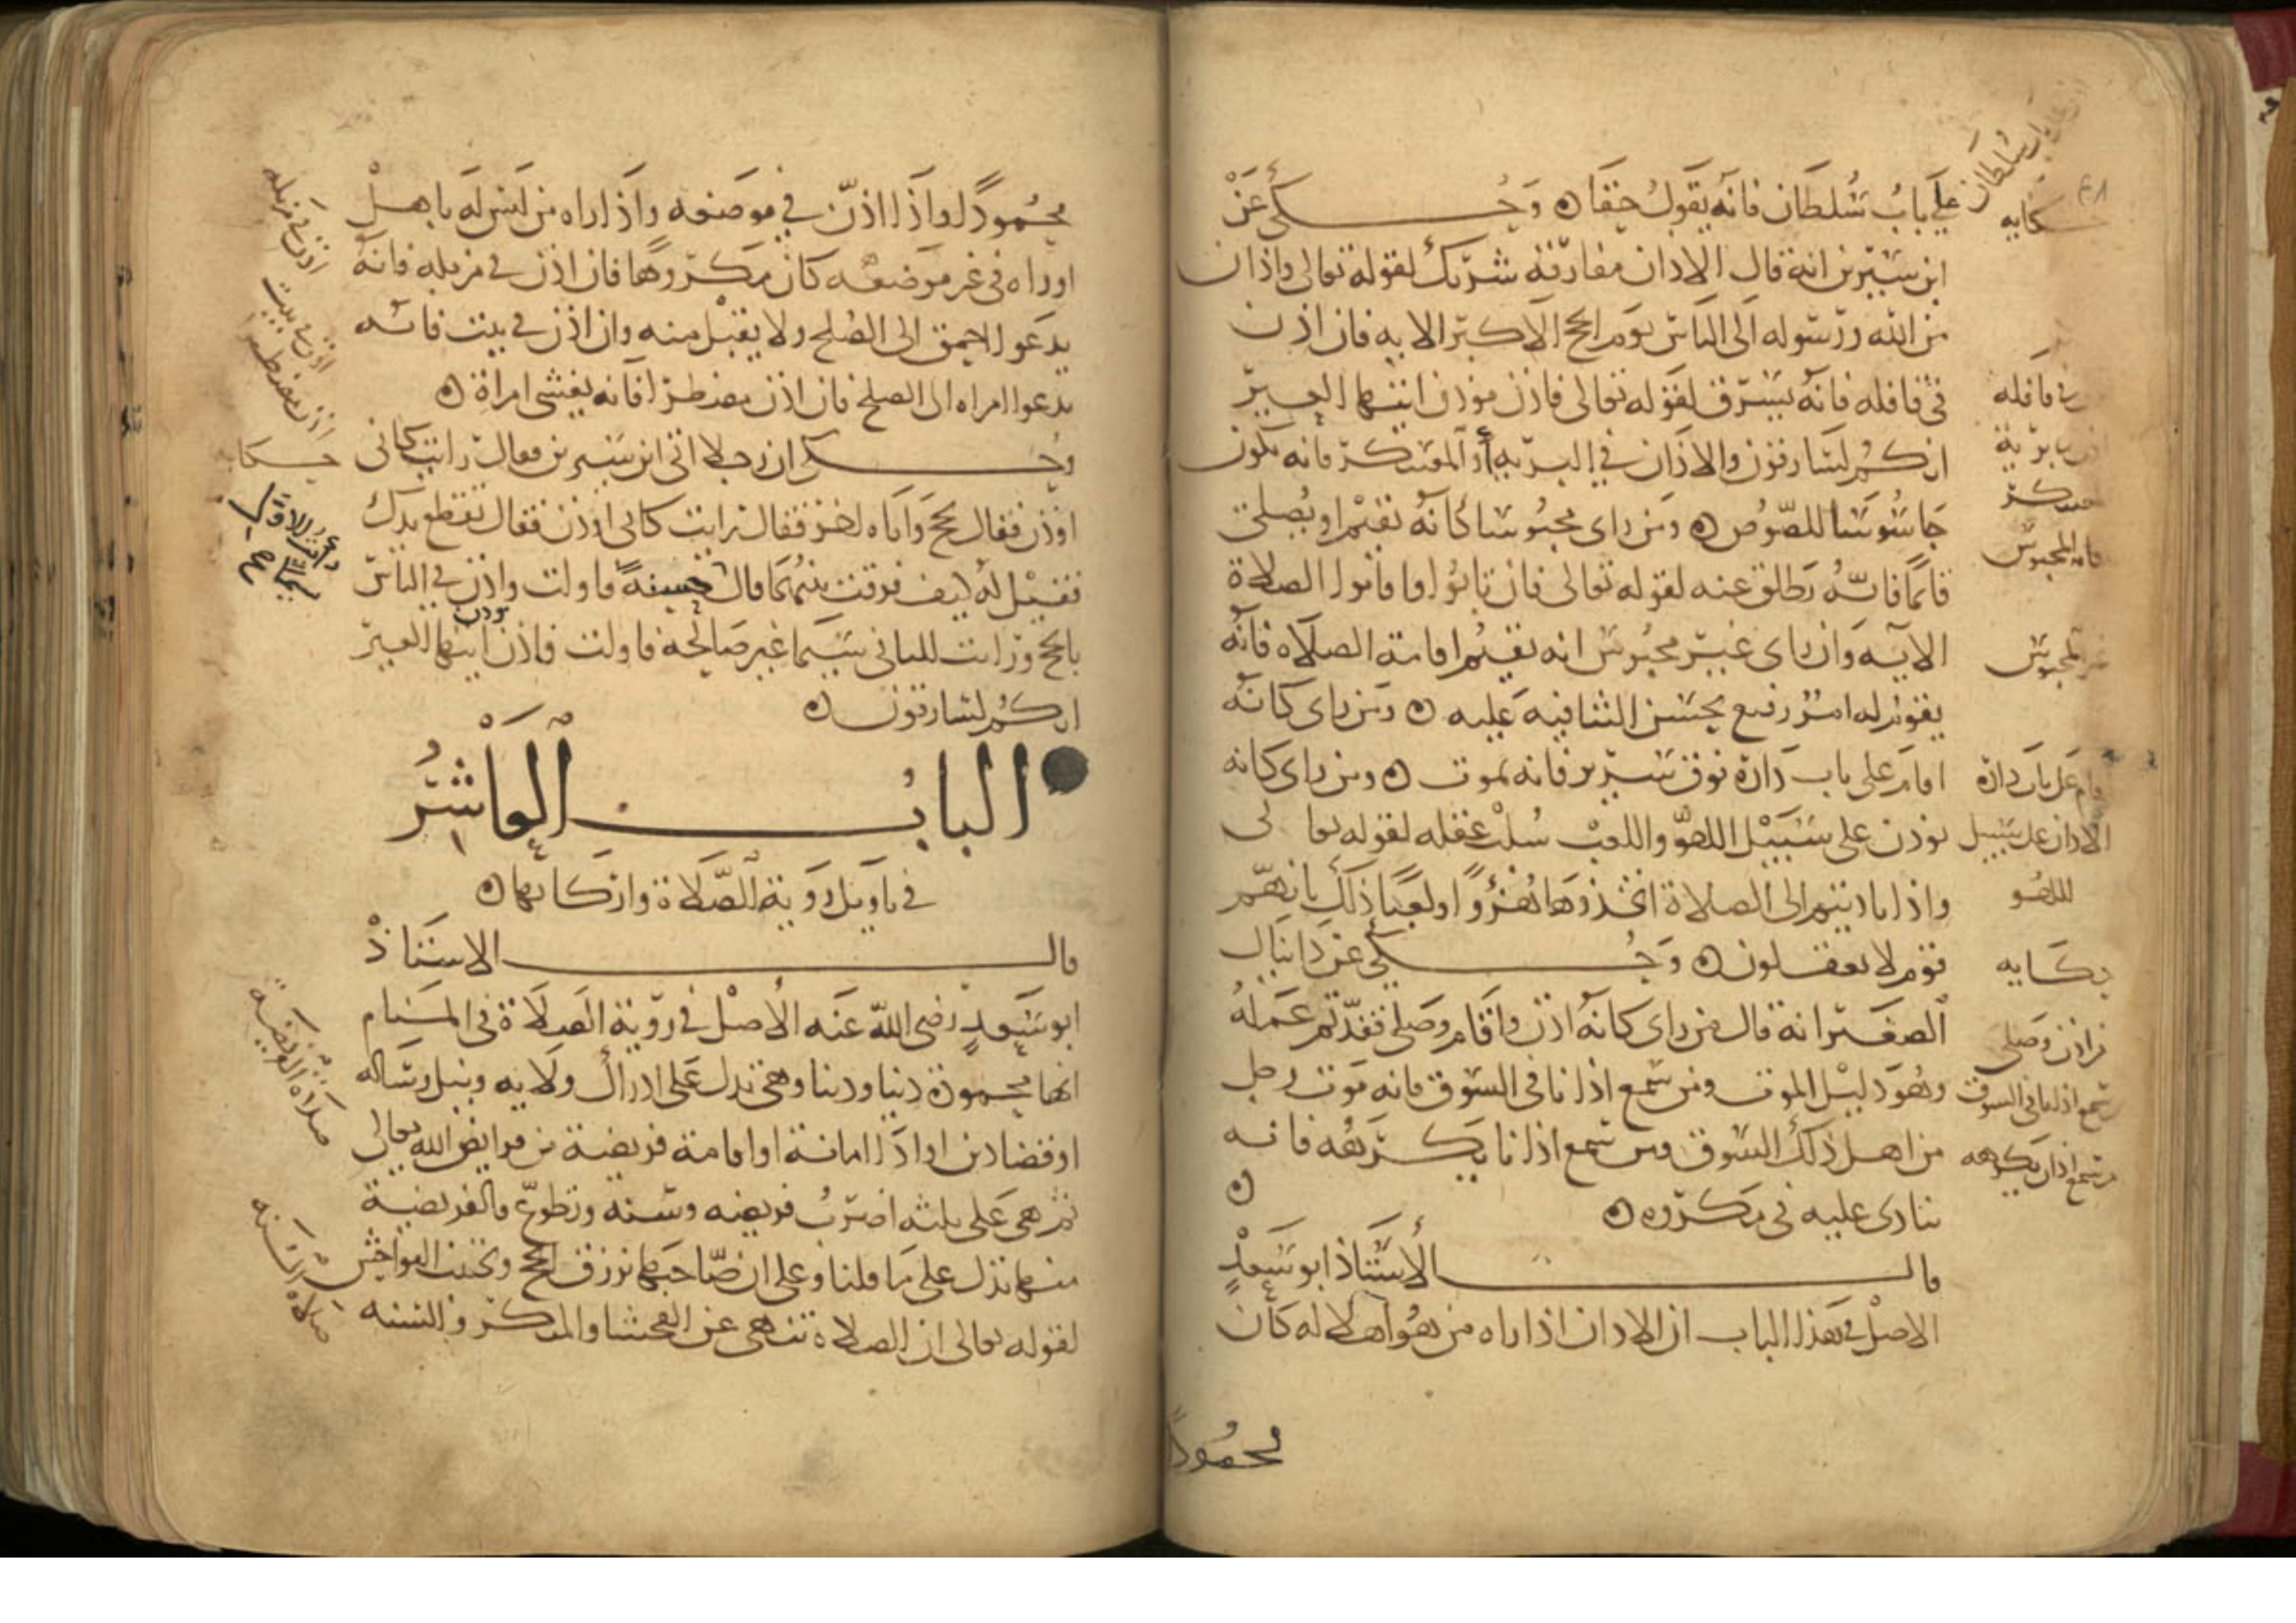 على باب سلطان فانه يقول حقا ه وحكى عن
ابن سيرين انه قال الاذان مفارقة شريك لقوله تعالى واذان
من الله ورسوله الى الناس يوم الحج الاكبر الايه فان اذن
في قافله فانه يسرق لقوله تعالى فاذن موذن ايتها العير
انكم لسارقون والاذان في البريه او المعسكر فانه يكون
جاسوسا للصوص ه ومن راى محبوسا كانه يقيم او يصلى
قائما فانه يطلق عنه لقوله تعالى فان تابوا واقاموا الصلاة
الآيه وان راى غير محبوس انه يقيم اقامة الصلاه فانه
يقوم له امر رفيع يحسن الثنا فيه عليه ه ومن راى كانه
اقام على باب داره فوق سرير فانه يموت ه ومن راى كانه
يوذن على سبيل اللهو واللعب سلب عقله لقوله تعالى
واذا ناديتم الى الصلاة اتخذوها هزؤا ولعبا ذلك بانهم
قوم لا يعقلون ه وحكى عن دانيال
الصغير انه قال من راى كانه اذن واقام وصلى فقد تم عمله
وهو دليل الموت ومن سمع اذانا في السوق فانه موت رجل
من اهل ذلك السوق ومن سمع اذانا يكرهه فانه
ينادى عليه في مكروه ه
قال الأستاذ ابو سعد
الاصل في هذا الباب ان الاذان اذا راه من هو اهلا له كان
محمودا
حكايه
في قافله
المحبوس
غير المحبوس
اقام على باب داره
الاذان على سبيل
اللهو
حكايه
من اذن وصلى
سمع اذانا في السوق
من سمع اذان يكرهه
محمودا واذا اذن في موضعه واذا راه من ليس له باهل
او راه في غير موضعه كان مكروها فان اذن في مزبله فانه
يدعو احمق الى الصلح ولا يقبل منه وان اذن في بيت فانه
يدعوا امراه الى الصلح فان اذن مضطرا فانه يغشى امراة ه
وحكى ان رجلا اتى ابن سيرين فقال رايت كانى
اوذن فقال تحج واتاه اخر فقال رايت كانى اوذن فقال تقطع يدك
فقيل له كيف فرقت بينهما قال حسنة فاولت واذن في الناس
بالحج ورايت للثانى سيما غير صالحة فاولت فاذن موذن ايتها العير
انكم لسارقون ه
الباب العاشر
في تاويل روية الصلاة واركانها ه
قال الاستاذ
ابو سعد رضى الله عنه الأصل في روية الصلاة في المنام
انها محمودة دينا ودنيا وهى تدل على ادراك ولايه ونيل رساله
او قضا دين او اداء امانة او اقامة فريضة من فرايض الله تعالى
ثم هى على ثلثه اضرب فريضه وسنه وتطوع فالفريضة
منها تدل على ما قلنا وعلى ان صاحبها يرزق الحج ويجتنب الفواحش
لقوله تعالى ان الصلاة تنهى عن الفحشا والمنكر والسنه
اذن في مزبله
اذن في بيت
حكايه
صلاه الفريضة
صلاه السنه